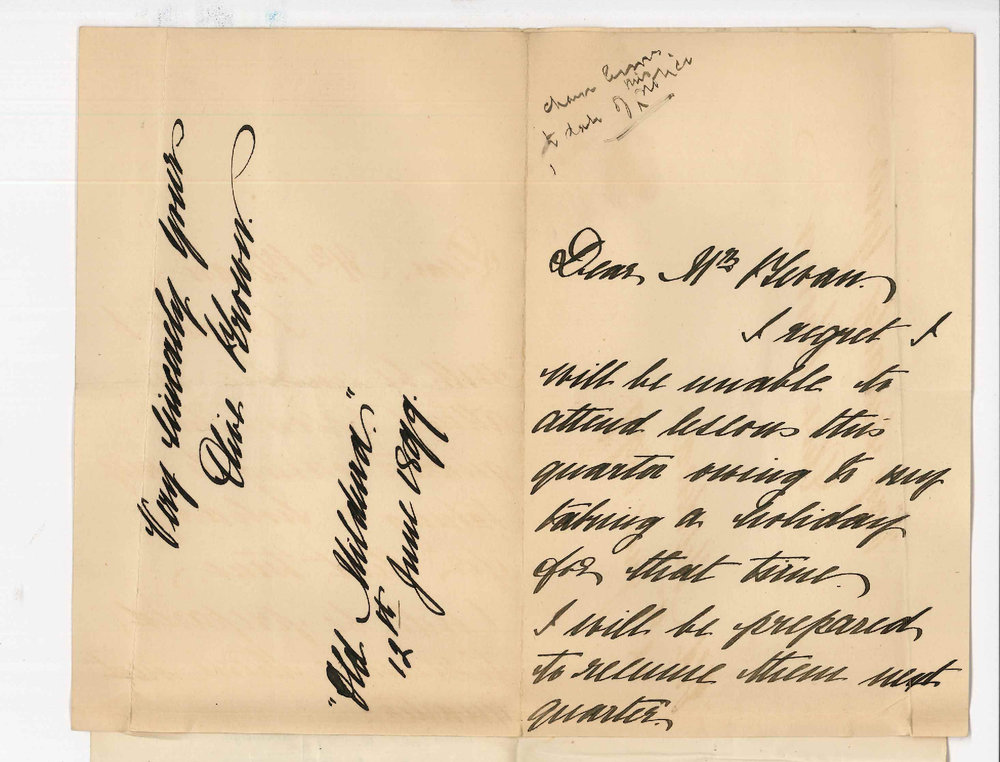 to date of
notice
Dear Mrs Bevan,
I regret I
will be unable to
attend lessons this
quarter owing to my
taking a holiday
for that time.
I will be prepared
to resume them next
quarter.
Very Sincerely Yours
"Old Mildura."
12th June 1899.